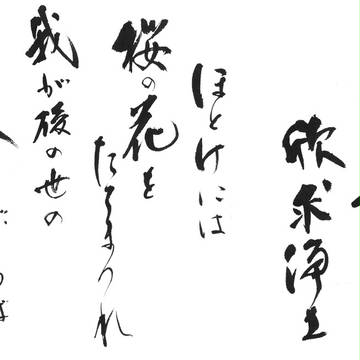 欣求浄土
ほとけには
桜の花を
たてまつれ
我が後の世の